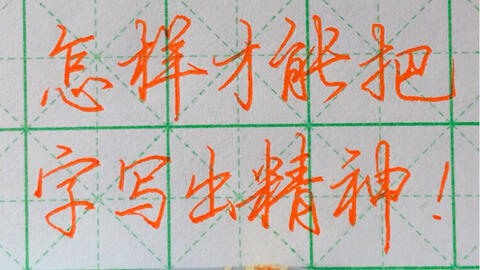 怎样才能把
字写出精神！